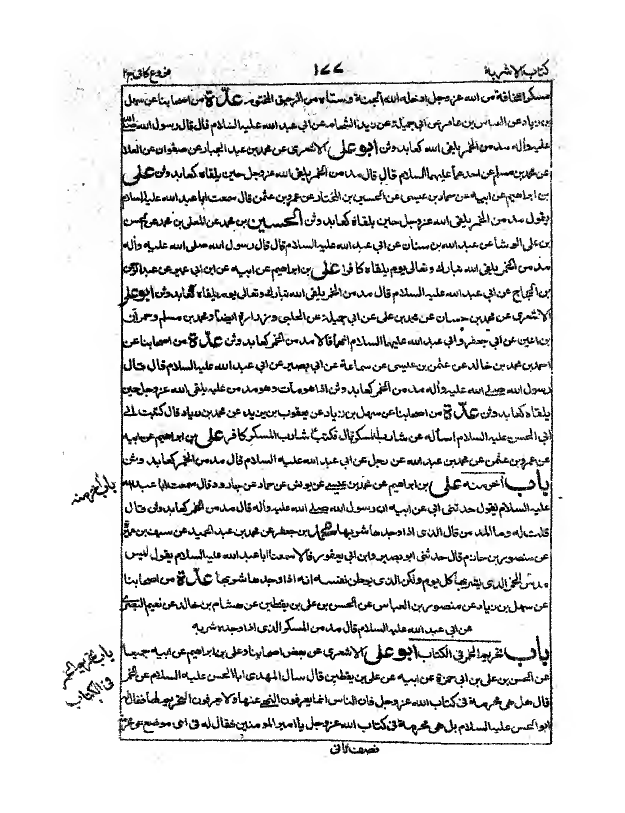 كتاب الاشربة
١٨٧
فروع كافى ج ٢
مسكر مخافة من الله عز وجل ادخله الله الجنة وسقاه من الرحيق المختوم عدّة من اصحابنا عن سهل
بن زياد عن العباس بن عامر عن ابي جميلة عن زيد الشحام عن ابي عبد الله عليه السلام قال قال رسول الله صلى الله
عليه وآله مدمن الخمر يلقى الله كعابد وثن ابو على الاشعرى عن محمد بن عبد الجبار عن صفوان عن العلا
عن محمد بن مسلم عن احدهما عليهما السلام قال قال مدمن الخمر يلقى الله عز وجل حين يلقاه كعابد وثن على
بن ابراهيم عن ابيه عن حماد بن عيسى عن الحسين بن المختار عن عمرو بن عثمن قال سمعت ابا عبد الله عليه السلام
يقول مدمن الخمر يلقى الله عز وجل حين يلقاه كعابد وثن الحسين بن محمد عن المعلى بن محمد عن الحسن
بن على الوشا عن عبد الله بن سنان عن ابي عبد الله عليه السلام قال قال رسول الله صلى الله عليه وآله
مدمن الخمر يلقى الله تبارك وتعالى يوم يلقاه كافرا على بن ابراهيم عن ابيه عن ابن ابي عمير عن عبد الرحمن
بن الحجاج عن ابي عبد الله عليه السلام قال مدمن الخمر يلقى الله تبارك وتعالى يوم يلقاه كعابد وثن ابو على
الاشعرى عن محمد بن حسان عن محمد بن على عن ابي جميلة عن الحلبى وزرارة ايضا ومحمد بن مسلم وحمران
بن اعين عن ابي جعفر وابي عبد الله عليهما السلام انهما قالا مدمن الخمر كعابد وثن عدّة من اصحابنا عن
احمد بن محمد بن خالد عن عثمن بن عيسى عن سماعة عن ابي بصير عن ابي عبد الله عليه السلام قال قال
رسول الله صلى الله عليه وآله مدمن الخمر كعابد وثن اذا هو مات وهو مدمن عليه يلقى الله عز وجل حين
يلقاه كعابد وثن عدّة من اصحابنا عن سهل بن زياد عن يعقوب بن يزيد عن محمد بن قال كتبت الى
ابي الحسن عليه السلام اسأله عن شارب المسكر قال فكتب شارب المسكر كافر على بن ابراهيم عن ابيه
عن عمرو بن عثمن عن محمد بن عبد الله عن رجل عن ابي عبد الله عليه السلام قال مدمن الخمر كعابد وثن
باب آخر منه على بن ابراهيم عن محمد بن عيسى عن يونس عن حماد عن جارود قال سمعت ابا عبد الله
عليه السلام يقول حدثنى ابي عن ابيه ان رسول الله صلى الله عليه وآله قال مدمن الخمر كعابد وثن قال
قلت له وما المدمن قال الذى اذا وجدها شربها محمد بن جعفر عن محمد بن عبد الحميد عن سيف بن عميرة
عن منصور بن حازم قال حدثنى ابو بصير وابن ابي يعفور قالا سمعنا ابا عبد الله عليه السلام يقول ليس
مدمن الخمر الذى يشربها كل يوم ولكن الذى يوطن نفسه انه اذا وجدها شربها عدّة من اصحابنا
عن سهل بن زياد عن منصور بن العباس عن الحسن بن على بن يقطين عن هشام بن خالد عن نعيم البصرى
عن ابي عبد الله عليه السلام قال مدمن المسكر الذى اذا وجده شربه
باب تحريم الخمر فى الكتاب ابو على الاشعرى عن بعض اصحابنا وعلى بن ابراهيم عن ابيه جميعا
عن الحسن بن على بن ابي حمزة عن ابيه عن على بن يقطين قال سأل المهدى ابا الحسن عليه السلام عن الخمر
قال هل هى محرمة فى كتاب الله عز وجل فان الناس انما يعرفون النهى عنها ولا يعرفون التحريم لها فقال له
ابو الحسن عليه السلام بل هى محرمة فى كتاب الله عز وجل يا امير المومنين فقال له فى اى موضع هى محرمة
باب آخر منه
باب تحريم الخمر
فى الكتاب